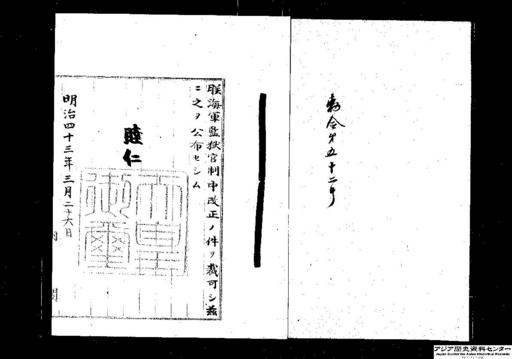 勅令第五十二号
朕海軍監獄官制中改正ノ件ヲ裁可シ茲
ニ之ヲ公布セシム
睦仁
天皇御璽
明治四十三年三月二十六日
内閣
アジア歴史資料センター
Japan Center for Asian Historical Records